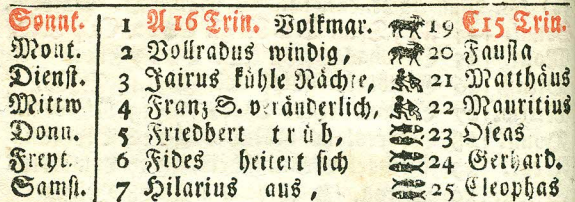 Sonnt. 1 A 16 Trin. Volkmar. 19 C 15 Trin.
Mont. 2 Vollradus windig, 20 Fausta
Dienst. 3 Jairus kühle Nächte, 21 Matthäus
Mittw 4 Franz S. veränderlich, 22 Mauritius
Donn. 5 Friedbert trüb, 23 Oseas
Freyt. 6 Fides heitert sich 24 Gerhard.
Samst. 7 Hilarius aus, 25 Cleophas